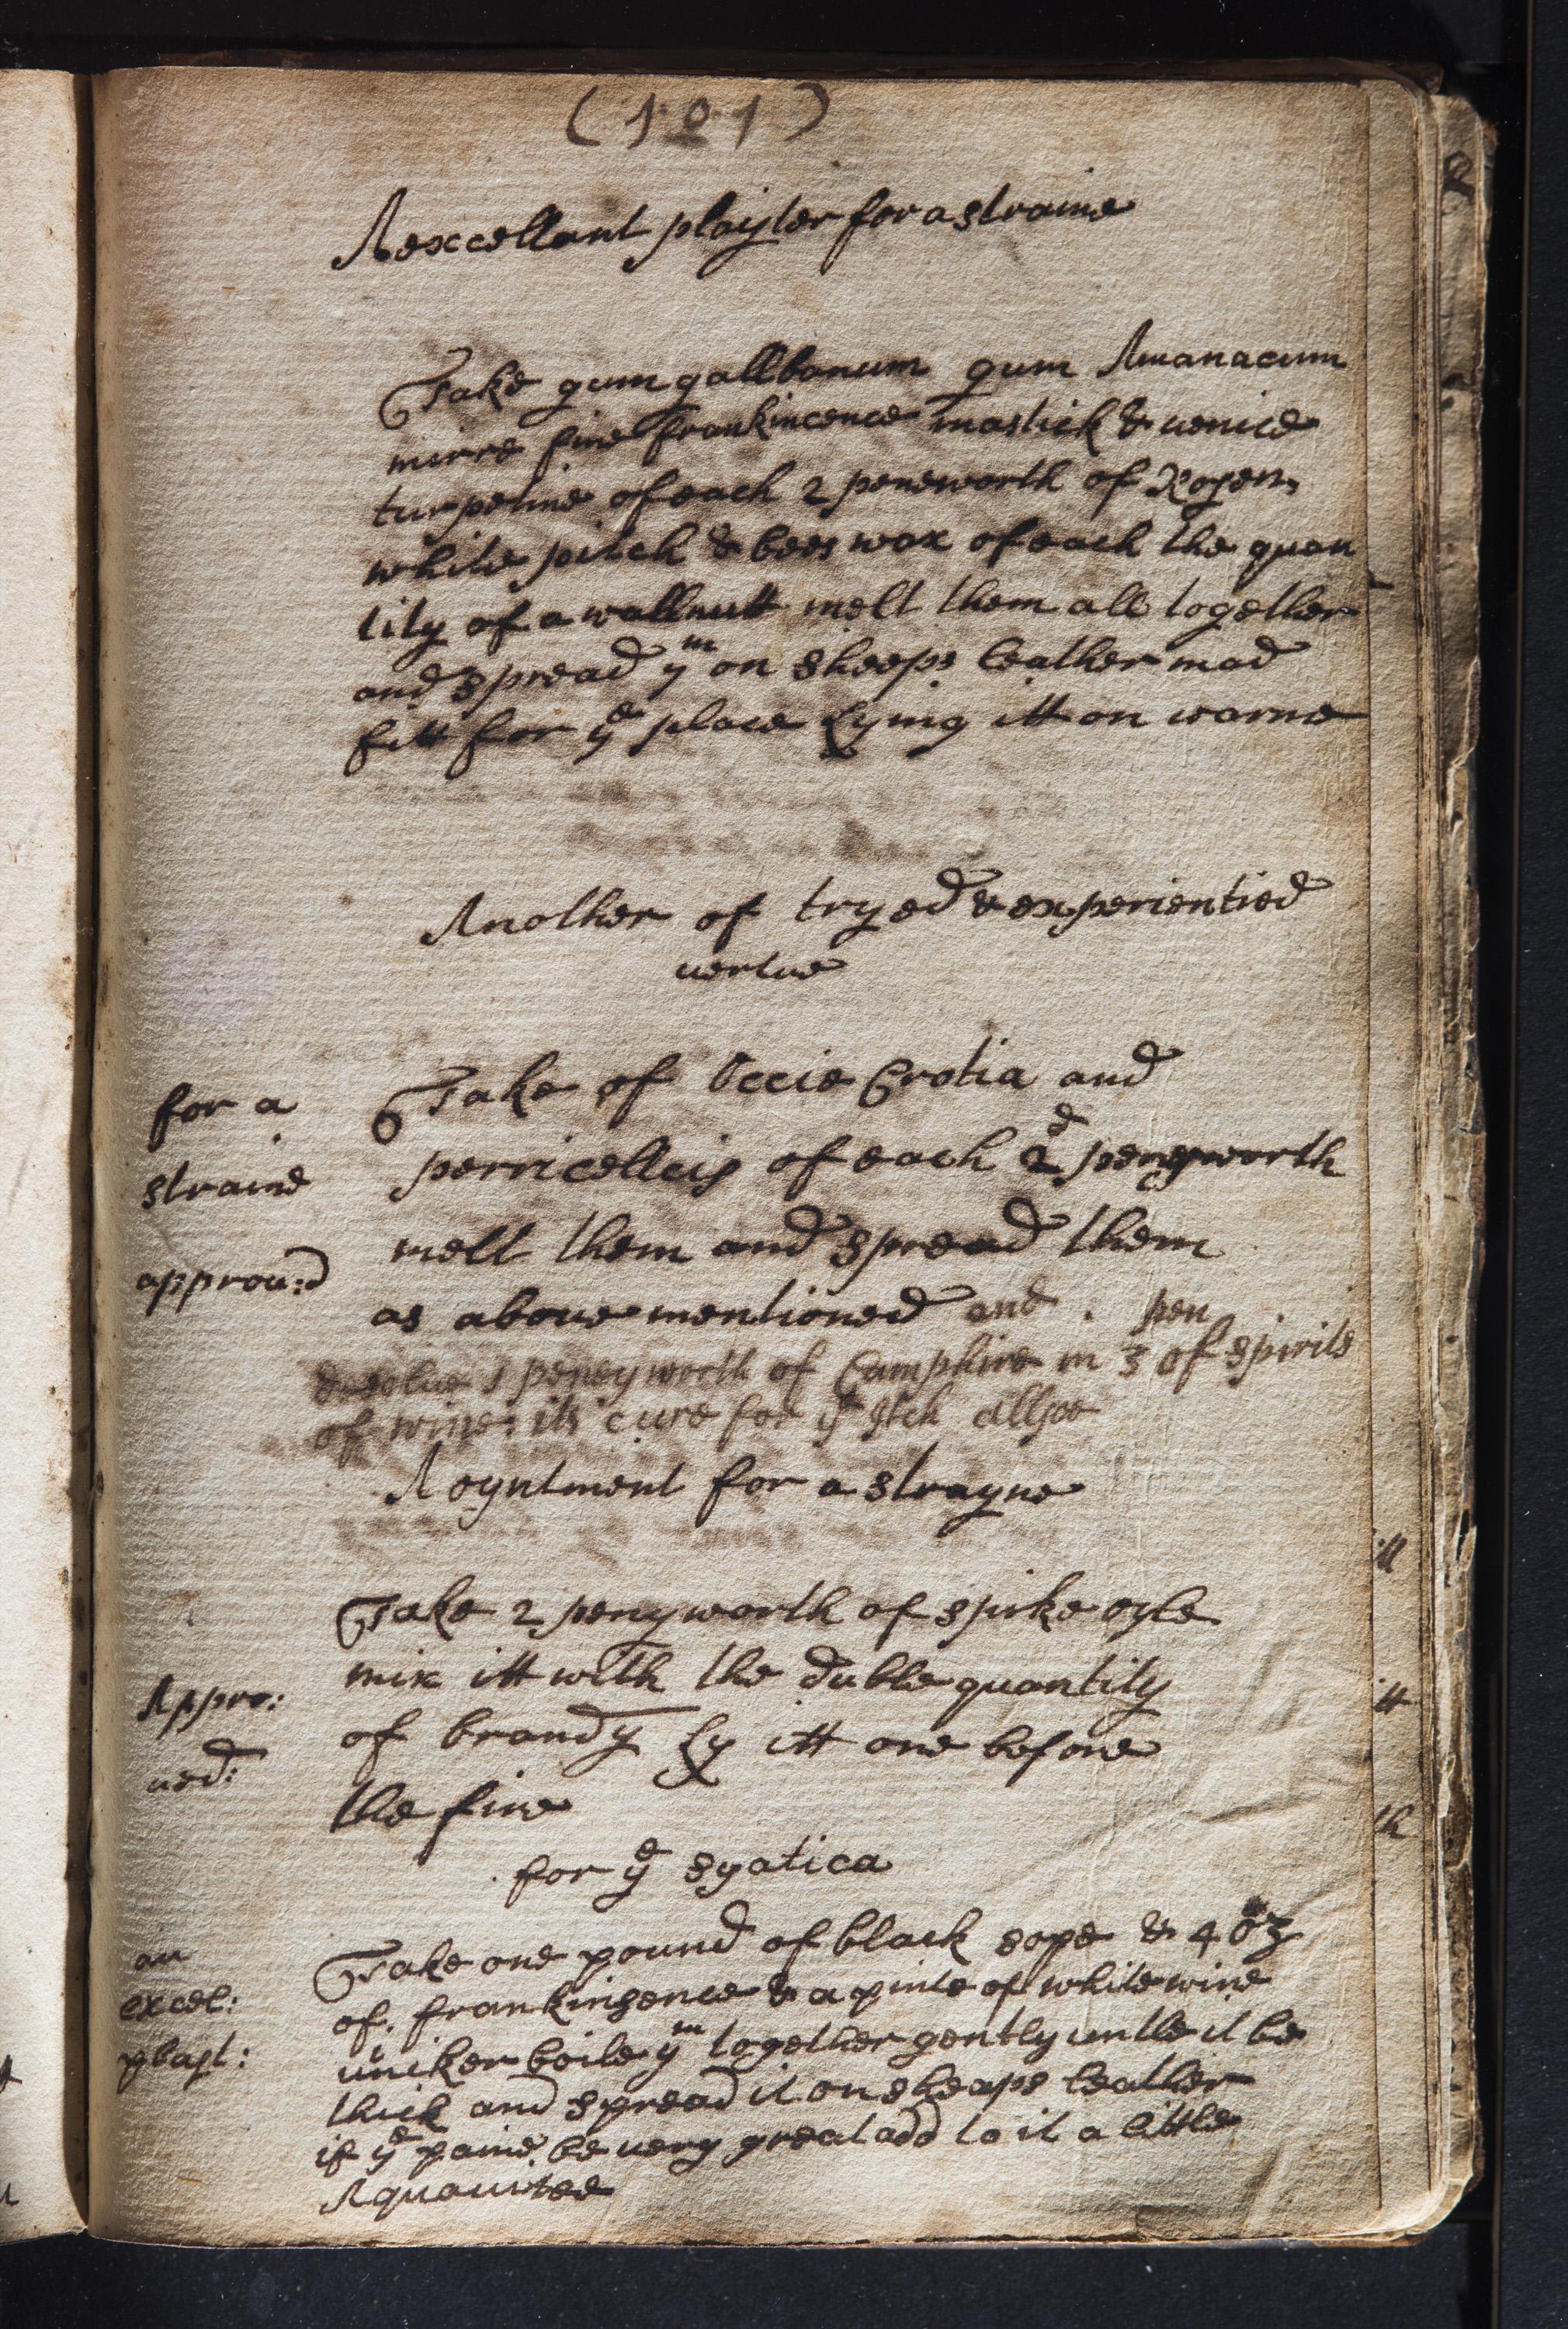 (101)
A excellant playster for a straine
Take gum gallbanum gum Amanacum
mirre fine frankincence mastick & uenice
turpetine of each 2 peneworth of Rosen
white pitch & bees wax of each the quan
tity of a wallnutt melt them all together
and spread ym on sheeps leather mad
fitt for ye place Lying itt on warme
Another of tryed & experientied
uertue
for a
straine
approu:d
Take of Occie Crotia and
perricelleis of each 2d penyworth
melt them and spread them
as aboue mentioned and . pen
desolue 1 peneyworth of Camphire in 3 of spirits
of wine: its cure for ye Itch allsoe
A oyntment for a strayne
Appro:
ued:
Take 2 penyworth of spike oyle
mix itt with the duble quantity
of brandy Ly itt one before
the fire
for ye syatica
an
excel:
plast:
Take one pound of black sope & 4 oz
of frankinsence & a pinte of white wine
uniker boile ym together gently untle it be
thick and spread it on sheaps leather
if ye paine be uery great add to it a little
Aquauitee